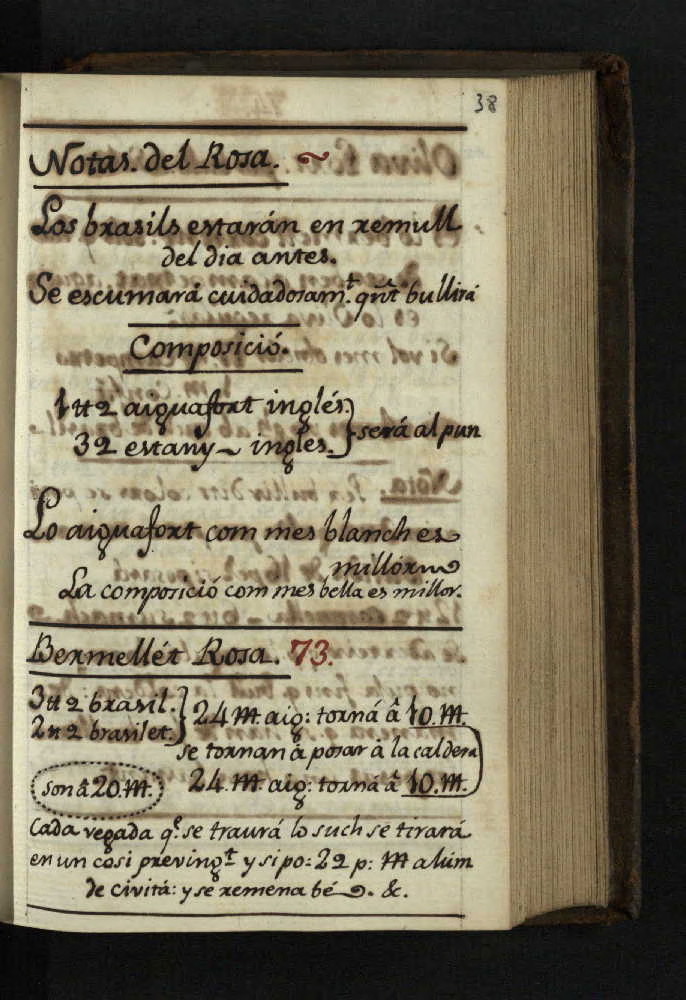 38
Notas. del Rosa. ~
Los brasils estarán en remull
del dia antes.
Se escumará cuidadosamt. qnt bullirá
Composició.
1 tt 2 aiguafort inglés.
32 estany inglés. será al pun
Lo aiguafort com mes blanch es
millor
La composició com mes bella es millor.
Bermellét Rosa. 73.
3 tt 2 brasil. 24 M. aig: torná â 10. M.
2 tt 2 brasilet.
se tornan à posar à la caldera
son â 20. M. 24. M. aig: torná â 10. M.
Cada vegada qe. se traurá lo such se tirará
en un cosi previngt. y si po: 22 p: M alúm
de civitá: y se remena bé. &.